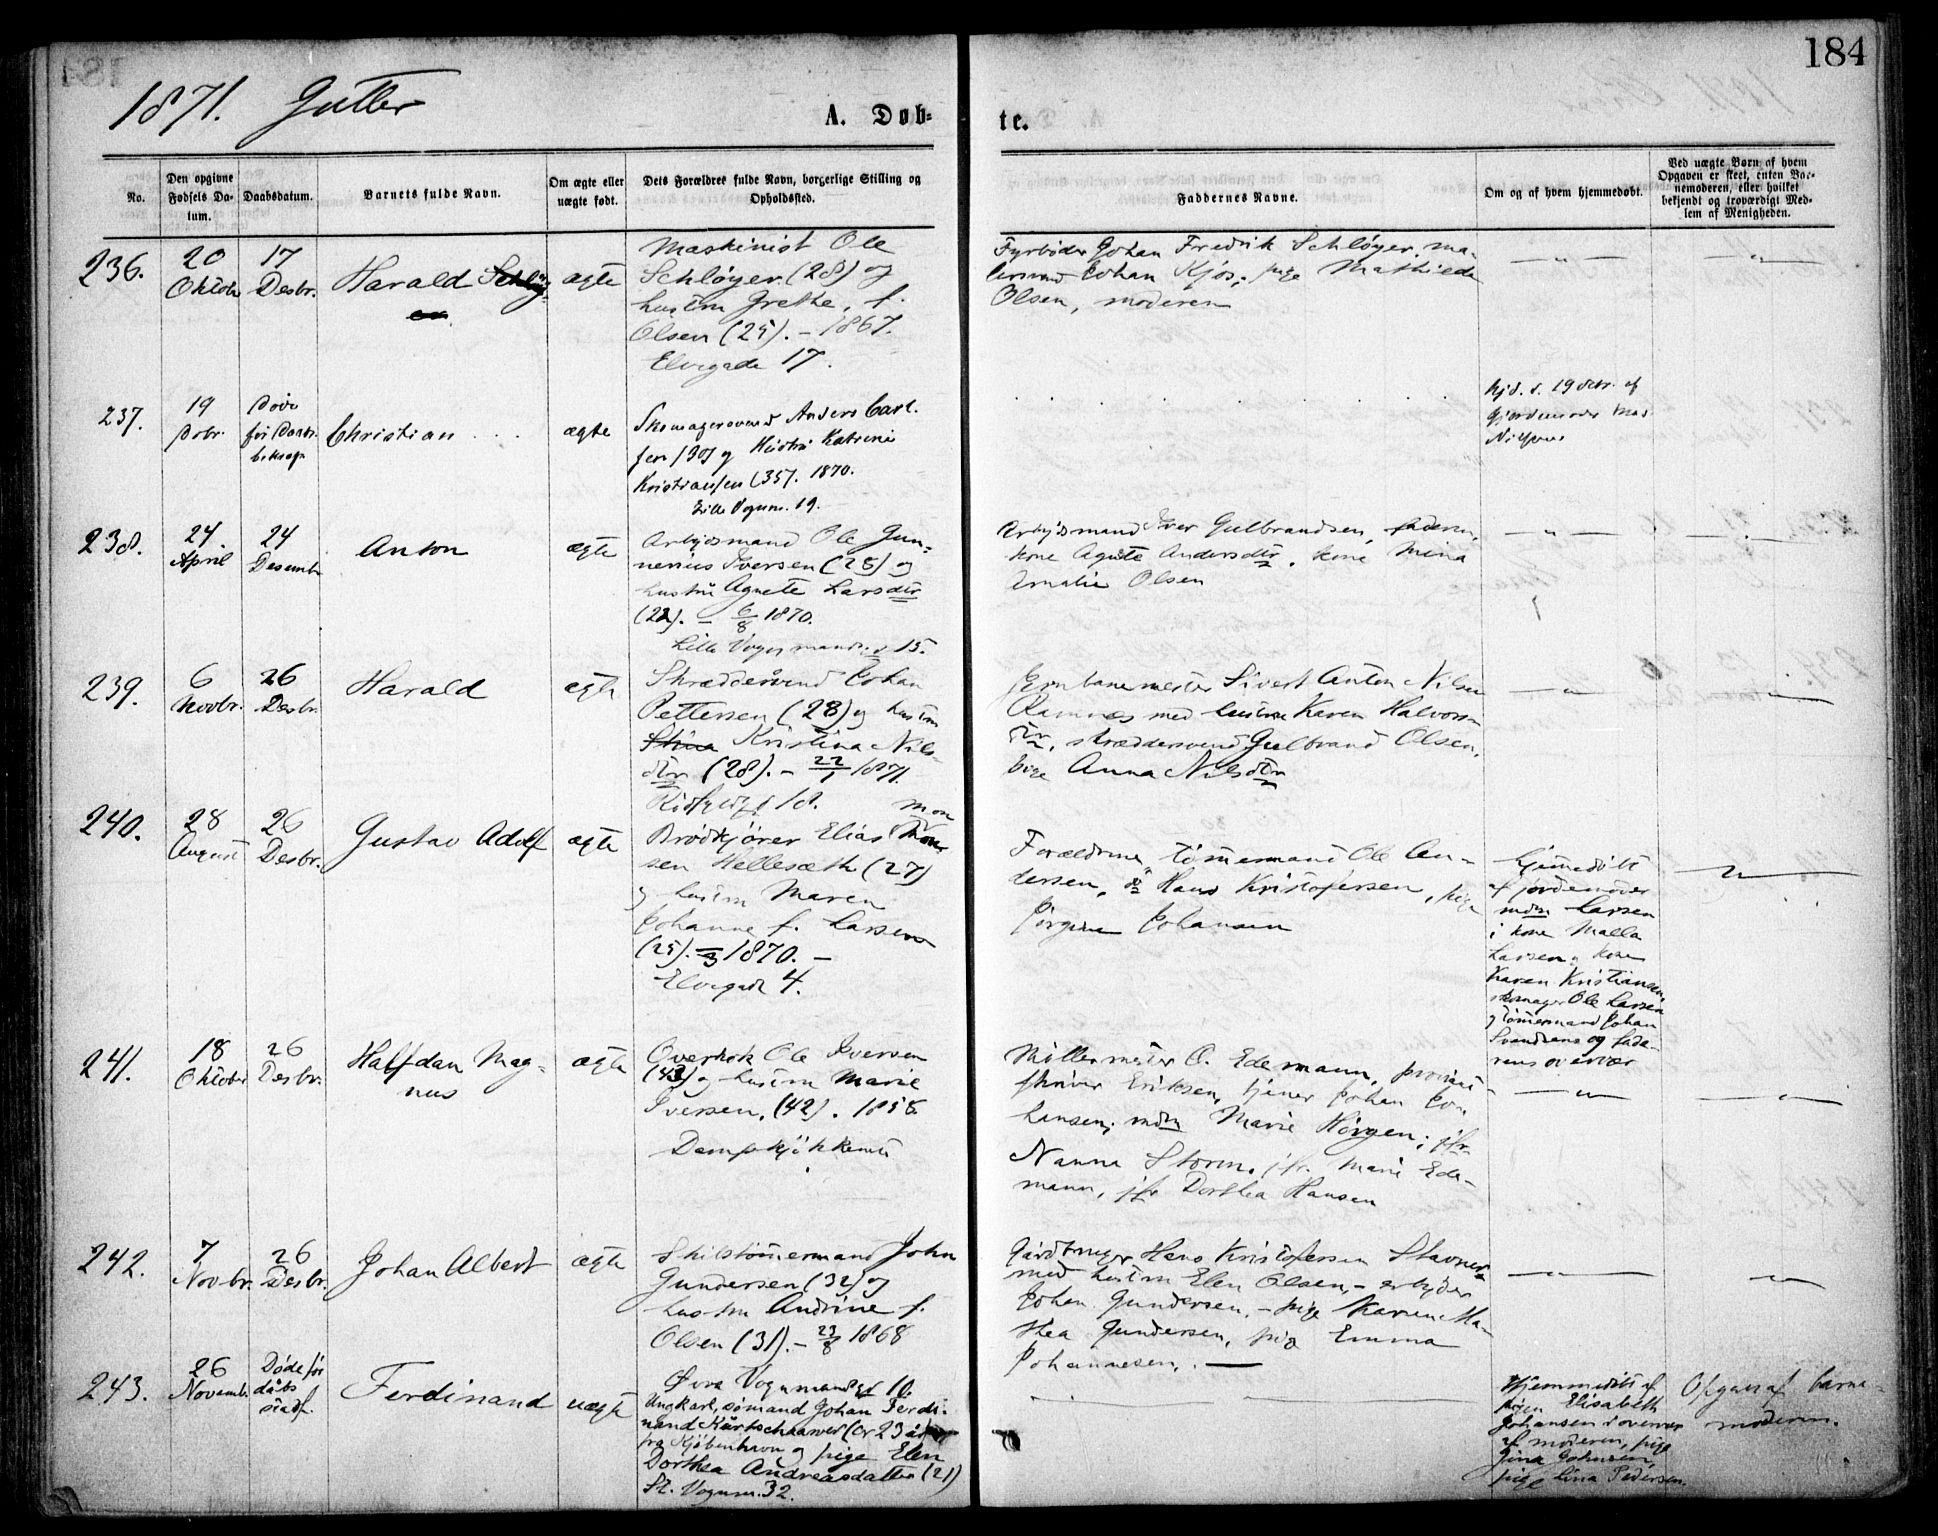 184
1871. Gutter
A. Døb-
te.
No.
Den opgivne
Fødsels Da-
tum.
Daabsdatum.
Barnets fulde Navn.
Om ægte eller
uægte født.
Dets Forældres fulde Navn, borgerlige Stilling og
Opholdssted.
Faddernes Navne.
Om og af hvem hjemmedøbt.
Ved uægte Børn af hvem
Opgaven er skeet, enten Bar-
nemoderen, eller hvilket
bekjendt og troværdigt Med-
lem af Menigheden.
236.
20
Oktobr
17
Desbr.
Harald
ægte
Maskinist Ole
Schløyer (28) og
hustru Grethe, f.
Olsen (25). - 1867.
Elvegade 17.
Fyrbøder Johan Fredrik Schløyer, ma-
lersvend Johan Kjos, pige Mathilde
Olsen, moderen
237.
19
Døde
før Daabs
Christian
ægte
Skomagersvend Anders Carl-
sen (30) og Hustru Katrine
Kristiansen (35). 1870.
Lille Vognm. 19.
Hjd. d. 19 af
Gjordemoder
238.
24
April
24
Desembr
Anton
ægte
Arbeidsmand Ole Gun-
nerius Iversen (25) og
hustru Agnete Larsdtr
(22). - 6/8 1870.
Lille Vognmandsg 15.
Arbeidsmand Iver Gulbrandsen, faderen,
kone Agnete Andersdtr, kone Mina
Amalie Olsen
239.
6
Novbr.
26
Desbr.
Harald
ægte
Skræddersvend Johan
Pettersen (28) og hustru
Stina Kristina Nils-
dtr (28). - 22/1 1871.
18.
Jernbanemester Sivert Anton Nilsen
Ramnes med hustru Karen Halvors-
dtr, skræddersvend Gulbrand Olsen,
pige Anna Nilsdtr
240.
28
August
26
Desbr.
Gustav Adolf
ægte
Brødkjører Elias Mon-
sen Hellesæth (27)
og hustru Maren
Johanne f. Larsen
(25). 1870. -
Elvegade 4.
Forældrene, tømmermand Ole An-
dersen, do Hans Kristofersen, pige
Jørgine Johansen
hjemmedøbt
af jordemoder
mdm Larsen
i kone Malla
Larsen, kone
Karen Kristiansen,
skomager Ole Larsen
og tømmermand Johan
Svendsens og fade-
rens overvær
241.
18
Oktober
26
Desbr.
Halfdan Mag-
nus
ægte
Overkok Ole Iversen
(43) og hustru Marie
Iversen, (42). 1858.
Dampkjøkkenet
Møllermester O. Edemann, proviant-
skriver Eriksen, tjener Johan Jo-
hansen, mdm Marie Hørgen; jfr
Nanna Storm, jfr. Marie Ede-
mann, jfr Dorthea Hansen
242.
7
Novbr.
26
Desbr.
Johan Albert
ægte
Skibstømmermand John
Gundersen (32) og
hustru Andrine f.
Olsen (31). - 23/8 1868
Øvre Vognmandsgd 10.
Gårdbruger Hans Kristofersen Stavnes
med hustru Elen Olsen, - arbeider
Johan Gundersen, - pige Karen Ma-
thea Gundersen, pige Emma
Johannesen.
243.
26
Novembr
Døde før
dåbs
stadf.
Ferdinand
uægte
Ungkarl, sømand Johan Ferdi-
nand (cr 23 år)
fra Kjøbenhavn og pige Elen
Dorthea Andreasdatter (21)
St. Vognm. 32.
Hjemmedøbt af
pigen Elisabeth
Johansen i overvær
af moderen, pige
Gina Johnsen,
pige Lina Pedersen.
Opgav af barne-
moderen.